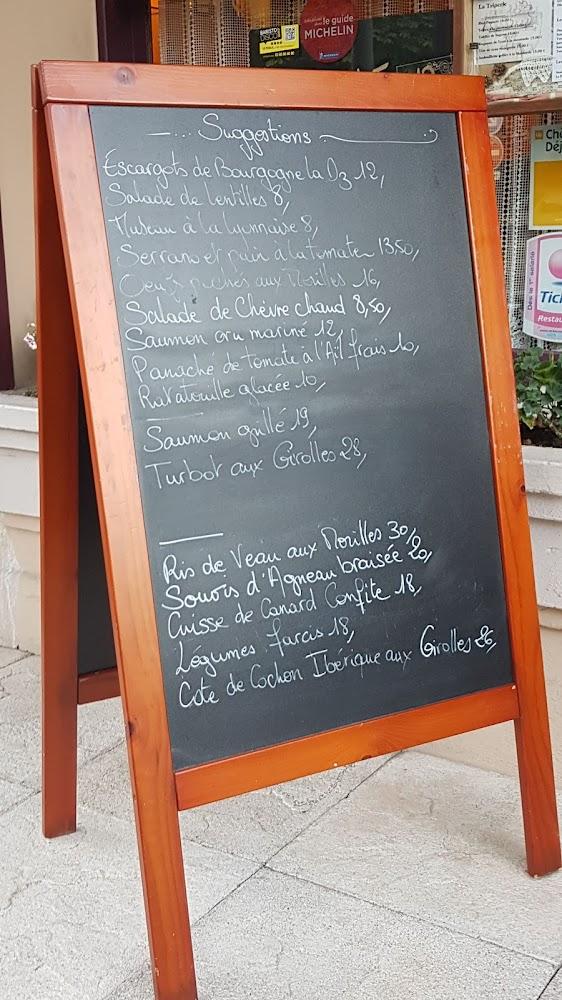 le guide
MICHELIN
La Triperie
Suggestions
Escargots de Bourgogne la Dz 12,
Salade de lentilles 8,
Museau à la lyonnaise 8,
Serrano et pain à la tomate 13 50,
Oeufs pochés aux Morilles 16,
Salade de Chèvre chaud 8,50,
Saumon cru mariné 12,
Panaché de tomate à l'Ail frais 10,
Ratatouille glacée 10,
Saumon grillé 19,
Turbot aux Girolles 28,
Ris de Veau aux Morilles 30,
Souris d'Agneau braisée 20,
Cuisse de Canard Confite 18,
Légumes farcis 18,
Cote de Cochon Ibérique aux Girolles 26,
Ch
Déj
Dès le 1er salarié
Tic
Restau